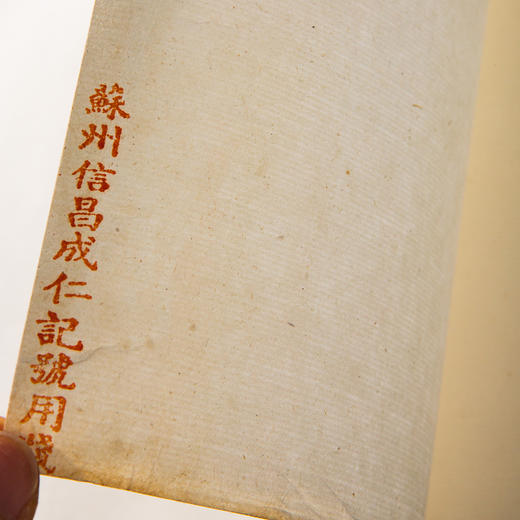 蘇州信昌成仁記號用